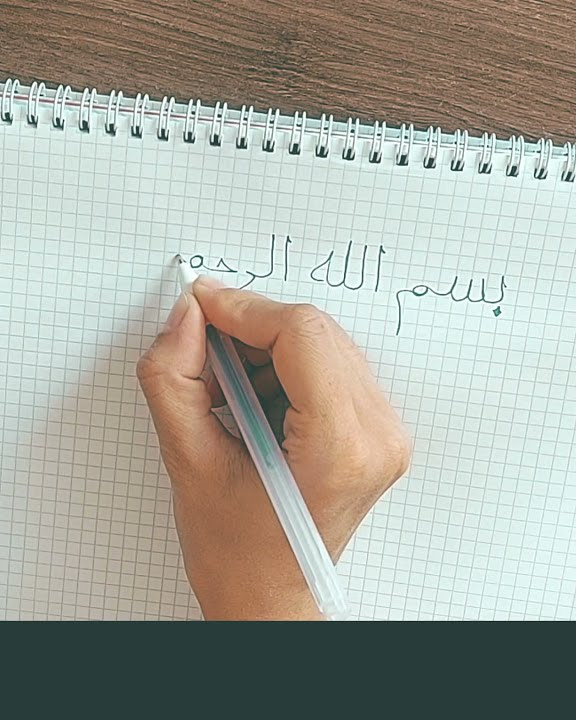 بسم الله الرحمـ